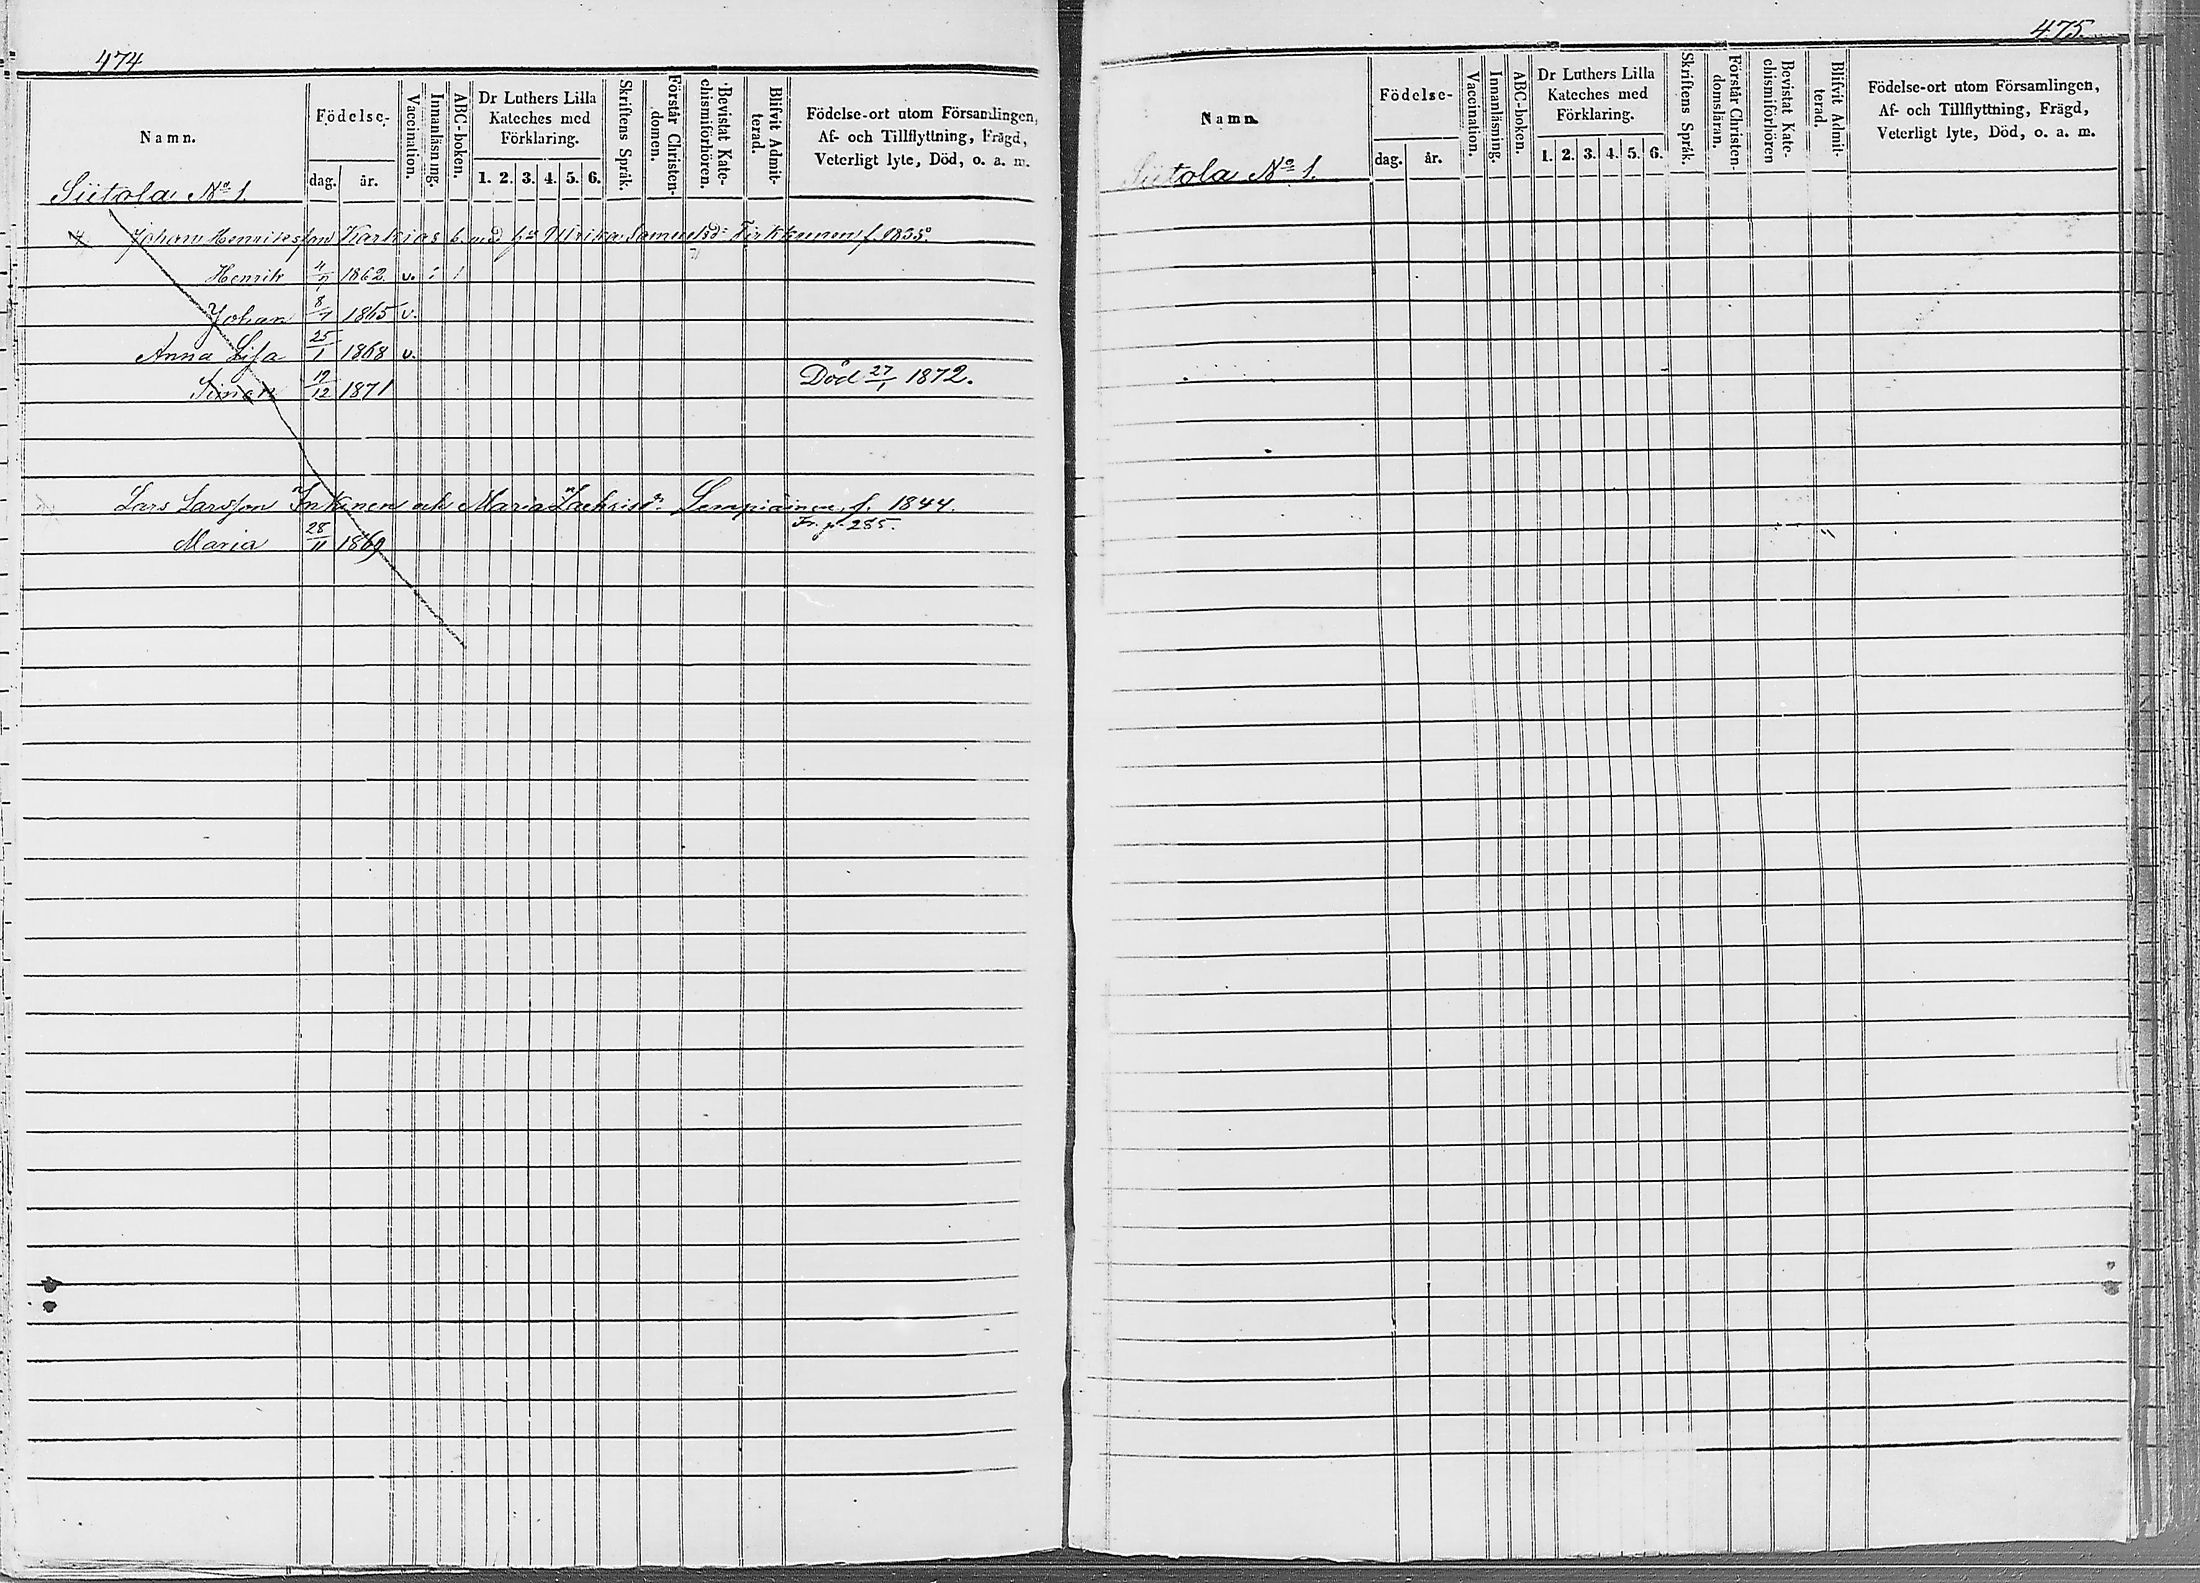 474
Namn.
Födelse-
dag. år.
Vaccination.
Innanläsning.
ABC-boken.
Dr Luthers Lilla
Kateches med
Förklaring.
1. 2. 3. 4. 5. 6.
Skriftens Språk.
Förstår Christen-
domen.
Bevistat Kate-
chismiförhören.
Blifvit Admit-
terad.
Födelse-ort utom Församlingen,
Af- och Tillflyttning, Frägd,
Veterligt lyte, Död, o. a. m.
Siitola No 1.
Johan Henriksson Karhias Ulrika Samuelsd: Tirkkonen f. 1835.
Henrik 1862. v.
Johan 8/7 1865 v.
Anna Lisa 25/1 1868 v.
Simon 19/12 1871 Död 27/1 1872.
Lars Larsson Inkinen och Maria Zachrisd: Lempiäinen f. 1844.
Fr. p. 285.
Maria 28/11 1869
475.
Namn.
Födelse-
dag. år.
Vaccination.
Innanläsning.
ABC-boken.
Dr Luthers Lilla
Kateches med
Förklaring.
1. 2. 3. 4. 5. 6.
Skriftens Språk.
Förstår Christen-
domsläran.
Bevistat Kate-
chismiförhören
Blifvit Admit-
terad.
Födelse-ort utom Församlingen,
Af- och Tillflyttning, Frägd,
Veterligt lyte, Död, o. a. m.
Siitola No 1.